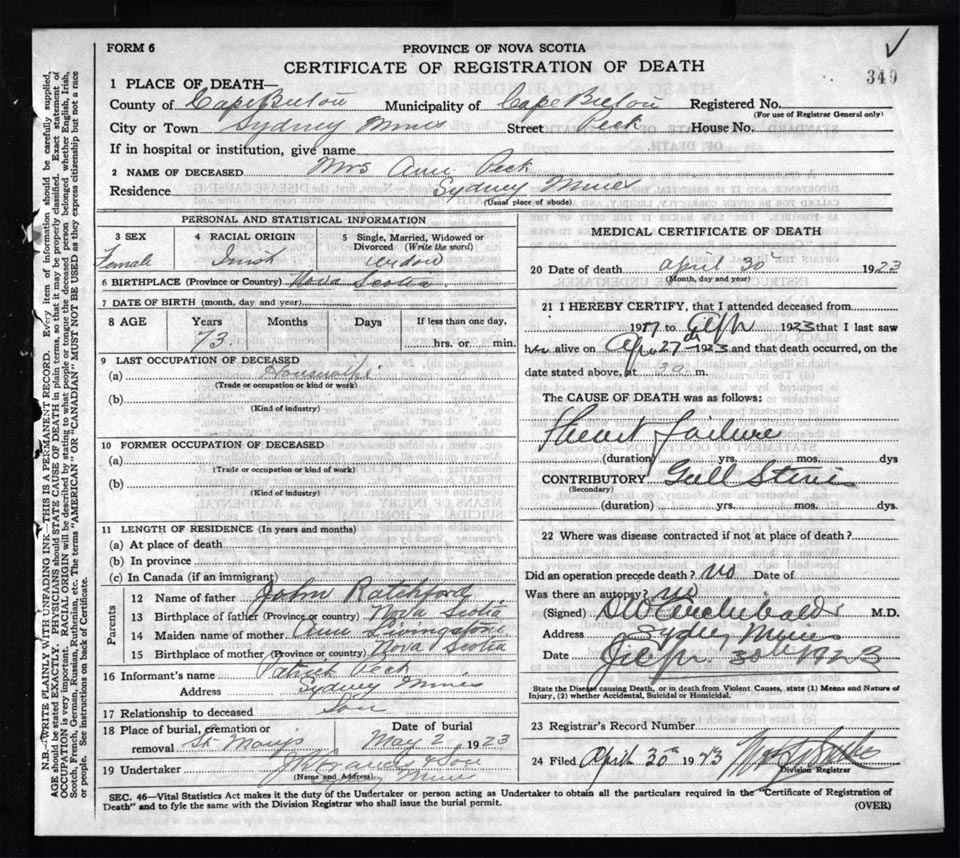 FORM 6
PROVINCE OF NOVA SCOTIA
CERTIFICATE OF REGISTRATION OF DEATH
349
1 PLACE OF DEATH—
County of Cape Breton Municipality of Cape Breton Registered No.
(For use of Registrar General only)
City or Town Sydney Mines Street Peck House No.
If in hospital or institution, give name
2 NAME OF DECEASED Mrs Ann Peck
Residence Sydney Mines
(Usual place of abode)
PERSONAL AND STATISTICAL INFORMATION
3 SEX Female
4 RACIAL ORIGIN Irish
5 Single, Married, Widowed or Divorced (Write the word) Widow
6 BIRTHPLACE (Province or Country) Nova Scotia
7 DATE OF BIRTH (month, day and year)
8 AGE Years Months Days If less than one day,
73 hrs. or min.
9 LAST OCCUPATION OF DECEASED
(a) Housewife
(Trade or occupation or kind or work)
(b)
(Kind of industry)
10 FORMER OCCUPATION OF DECEASED
(a)
(Trade or occupation or kind or work)
(b)
(Kind of industry)
11 LENGTH OF RESIDENCE (In years and months)
(a) At place of death
(b) In province
(c) In Canada (if an immigrant)
Parents
12 Name of father John Ratchford
13 Birthplace of father (Province or country) Nova Scotia
14 Maiden name of mother Ann Livingston
15 Birthplace of mother (Province or country) Nova Scotia
16 Informant's name Patrick Peck
Address Sydney Mines
17 Relationship to deceased Son
18 Place of burial, cremation or removal St Mary's
Date of burial May 2 1923
19 Undertaker & Son
(Name and Address) Mines
MEDICAL CERTIFICATE OF DEATH
20 Date of death April 30 1923
(Month, day and year)
21 I HEREBY CERTIFY, that I attended deceased from
1917 to 1923 that I last saw
her alive on Apr 27th 1923 and that death occurred, on the
date stated above, at m.
The CAUSE OF DEATH was as follows:
Heart failure
(duration) yrs. mos. dys
CONTRIBUTORY Gall
(Secondary)
(duration) yrs. mos. dys.
22 Where was disease contracted if not at place of death?
Did an operation precede death? no Date of
Was there an autopsy? no
(Signed) Archibald M.D.
Address Sydney Mines
Date 30th 1923
State the Disease causing Death, or in death from Violent Causes, state (1) Means and Nature of
Injury, (2) whether Accidental, Suicidal or Homicidal.
23 Registrar's Record Number
24 Filed April 30th 1923
Division Registrar
SEC. 46—Vital Statistics Act makes it the duty of the Undertaker or person acting as Undertaker to obtain all the particulars required in the "Certificate of Registration of
Death" and to fyle the same with the Division Registrar who shall issue the burial permit.
(OVER)
N.B.—WRITE PLAINLY WITH UNFADING INK—THIS IS A PERMANENT RECORD. Every item of information should be carefully supplied.
AGE should be stated EXACTLY. PHYSICIANS should STATE CAUSE OF DEATH in plain terms, so that it may be properly classified. Exact statement of
OCCUPATION is very important. RACIAL ORIGIN will be described by stating to what people or tongue the deceased person belonged whether English, Irish,
Scotch, French, German, Russian, Ruthenian, etc. The terms "AMERICAN" OR "CANADIAN" MUST NOT BE USED as they express citizenship but not a race
or people. See instructions on back of Certificate.